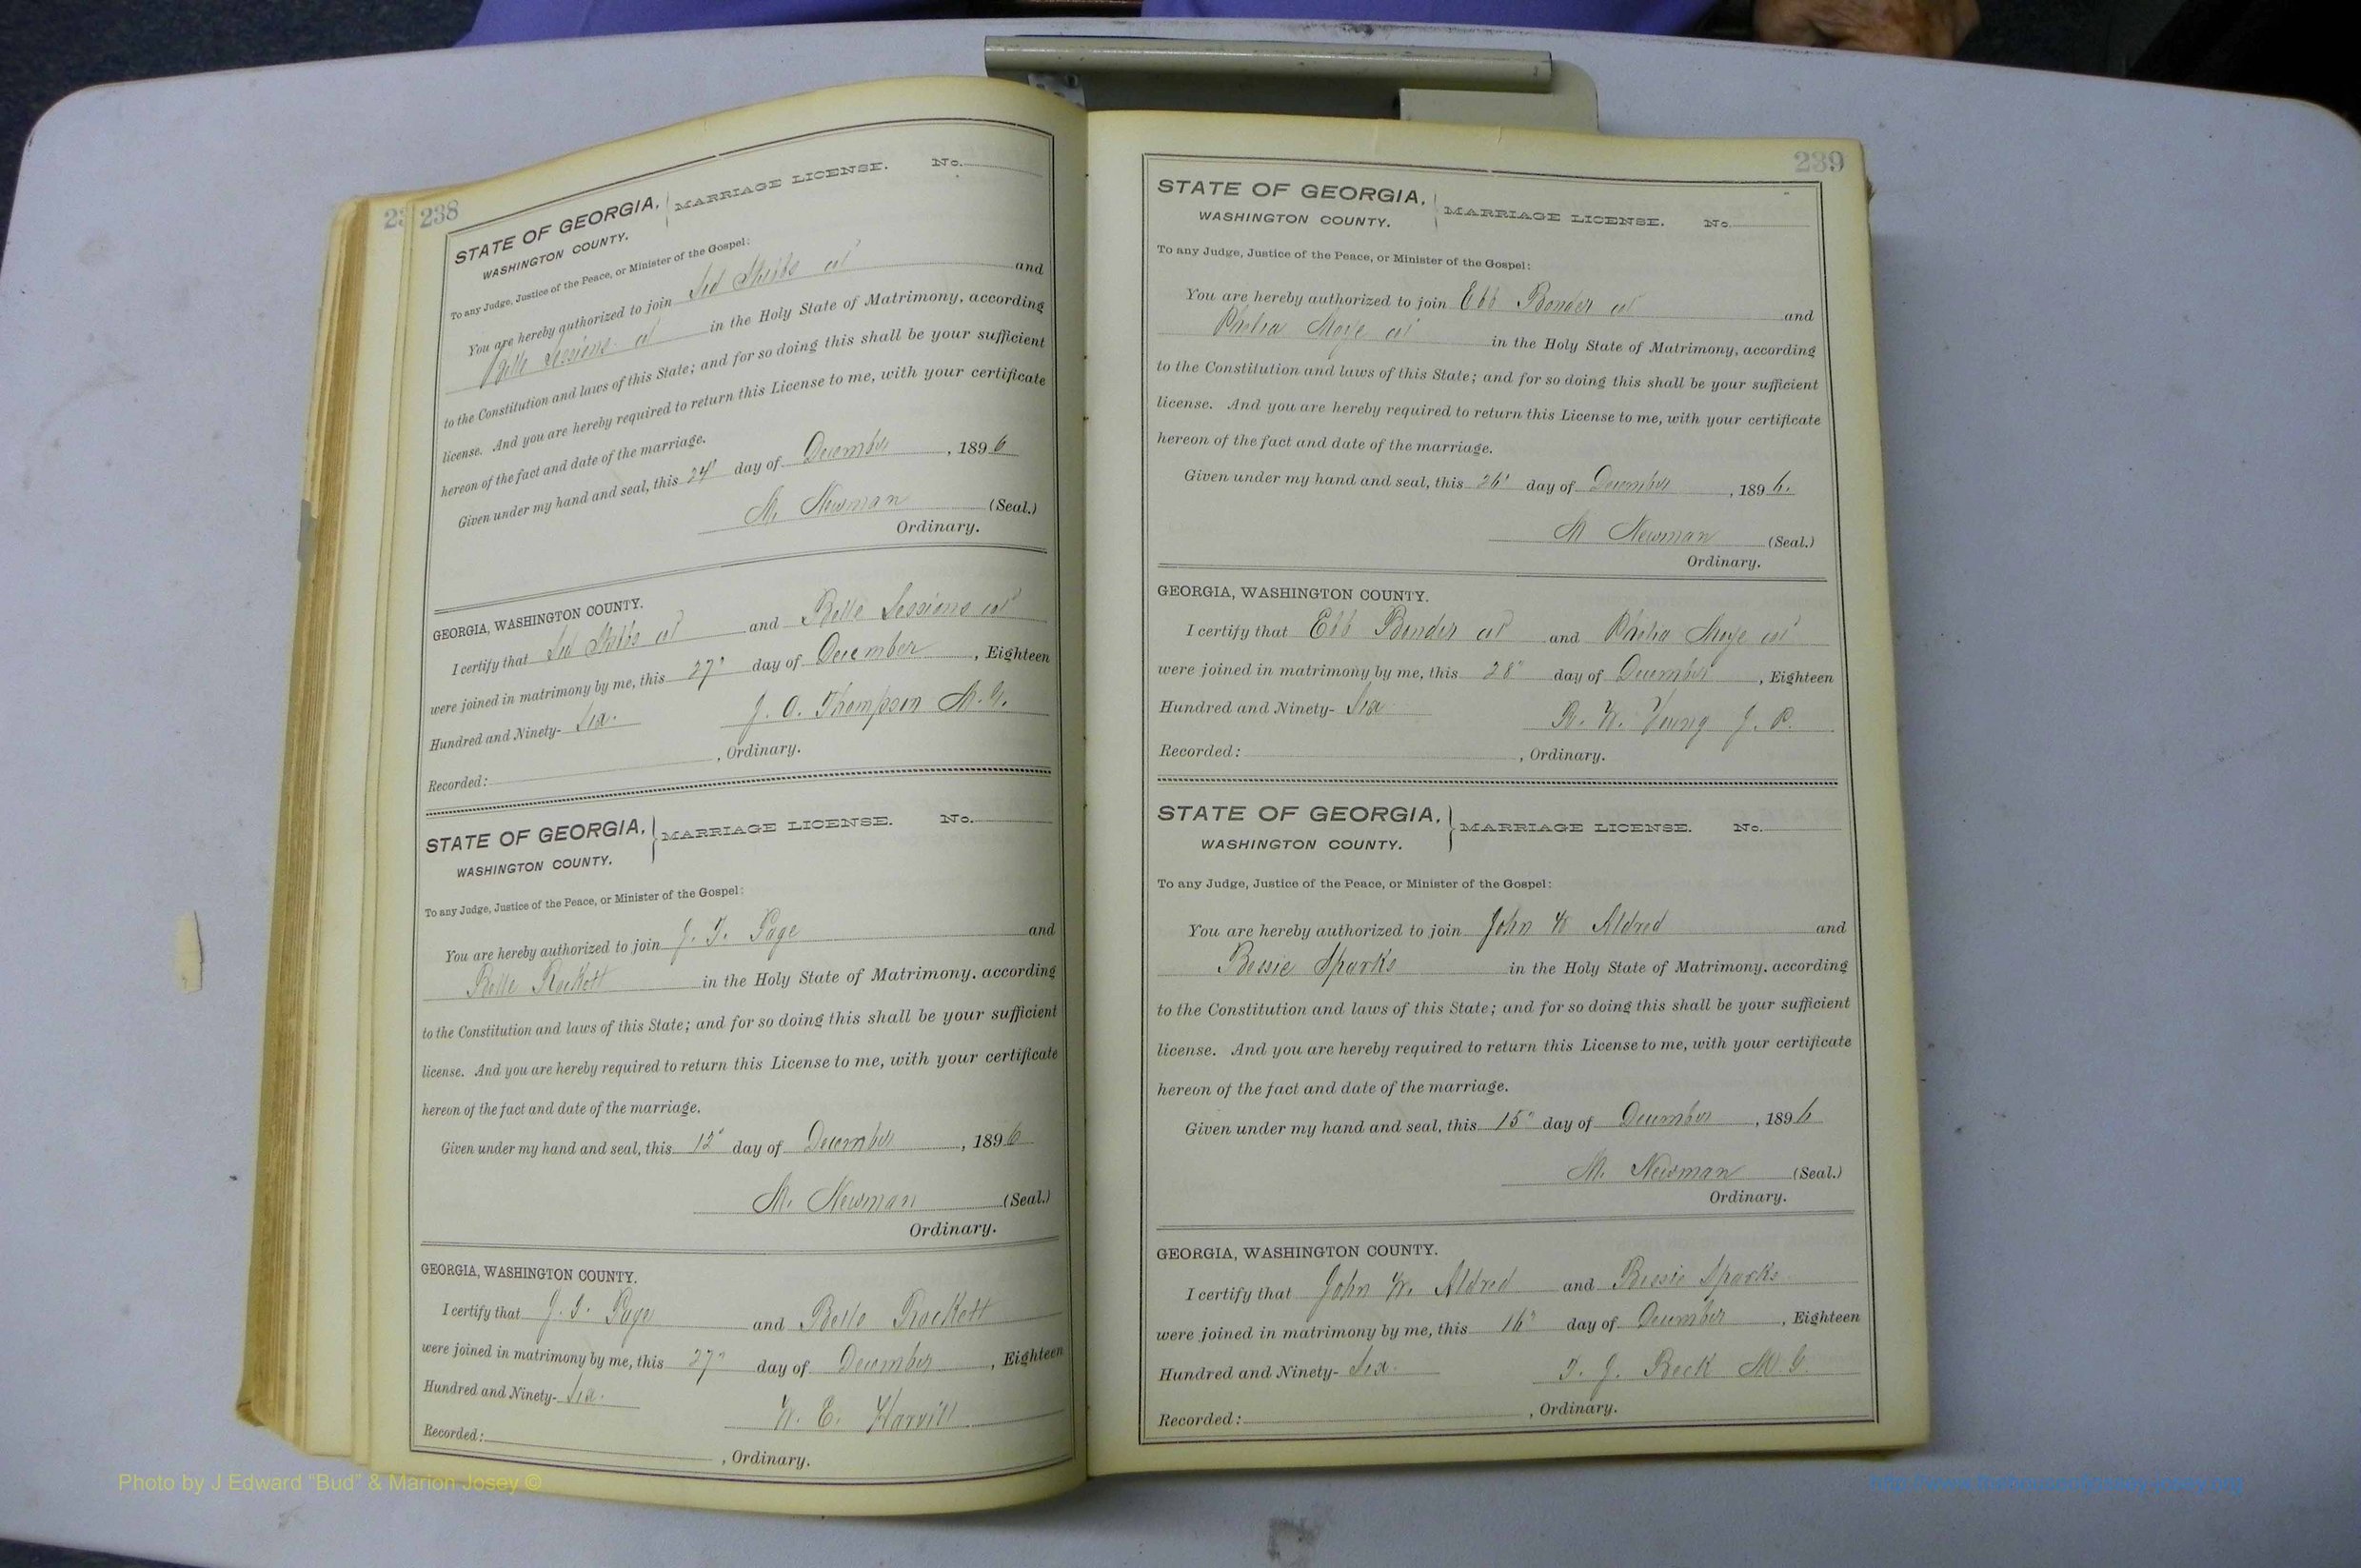 238
STATE OF GEORGIA,
WASHINGTON COUNTY.
MARRIAGE LICENSE. No.
To any Judge, Justice of the Peace, or Minister of the Gospel:
You are hereby authorized to join col and
Belle Sessions col in the Holy State of Matrimony, according
to the Constitution and laws of this State; and for so doing this shall be your sufficient
license. And you are hereby required to return this License to me, with your certificate
hereon of the fact and date of the marriage.
Given under my hand and seal, this 24" day of December, 1896
M. Newman (Seal.)
Ordinary.
GEORGIA, WASHINGTON COUNTY.
I certify that col and Belle Sessions col
were joined in matrimony by me, this 27" day of December, Eighteen
Hundred and Ninety- Six. J. O. Thompson M. G.
Recorded: , Ordinary.
STATE OF GEORGIA,
WASHINGTON COUNTY.
MARRIAGE LICENSE. No.
To any Judge, Justice of the Peace, or Minister of the Gospel:
You are hereby authorized to join J. T. Page and
Belle Rockett in the Holy State of Matrimony, according
to the Constitution and laws of this State; and for so doing this shall be your sufficient
license. And you are hereby required to return this License to me, with your certificate
hereon of the fact and date of the marriage.
Given under my hand and seal, this 12" day of December, 1896
M. Newman (Seal.)
Ordinary.
GEORGIA, WASHINGTON COUNTY.
I certify that J. T. Page and Belle Rockett
were joined in matrimony by me, this 27" day of December, Eighteen
Hundred and Ninety- Six. W. E. Harvill
Recorded: , Ordinary.
239
STATE OF GEORGIA,
WASHINGTON COUNTY.
MARRIAGE LICENSE. No.
To any Judge, Justice of the Peace, or Minister of the Gospel:
You are hereby authorized to join Ebb Bonder col and
col in the Holy State of Matrimony, according
to the Constitution and laws of this State; and for so doing this shall be your sufficient
license. And you are hereby required to return this License to me, with your certificate
hereon of the fact and date of the marriage.
Given under my hand and seal, this 26" day of December, 1896.
M Newman (Seal.)
Ordinary.
GEORGIA, WASHINGTON COUNTY.
I certify that Ebb Bonder col and col
were joined in matrimony by me, this 28" day of December, Eighteen
Hundred and Ninety- Six W. Young J. P.
Recorded: , Ordinary.
STATE OF GEORGIA,
WASHINGTON COUNTY.
MARRIAGE LICENSE. No.
To any Judge, Justice of the Peace, or Minister of the Gospel:
You are hereby authorized to join John W Aldred and
Bessie Sparks in the Holy State of Matrimony, according
to the Constitution and laws of this State; and for so doing this shall be your sufficient
license. And you are hereby required to return this License to me, with your certificate
hereon of the fact and date of the marriage.
Given under my hand and seal, this 15" day of December, 1896
M. Newman (Seal.)
Ordinary.
GEORGIA, WASHINGTON COUNTY.
I certify that John W. Aldred and Bessie Sparks
were joined in matrimony by me, this 16" day of December, Eighteen
Hundred and Ninety- Six. T. J. Beck M. G.
Recorded: , Ordinary.
Photo by J Edward "Bud" & Marion Josey ©